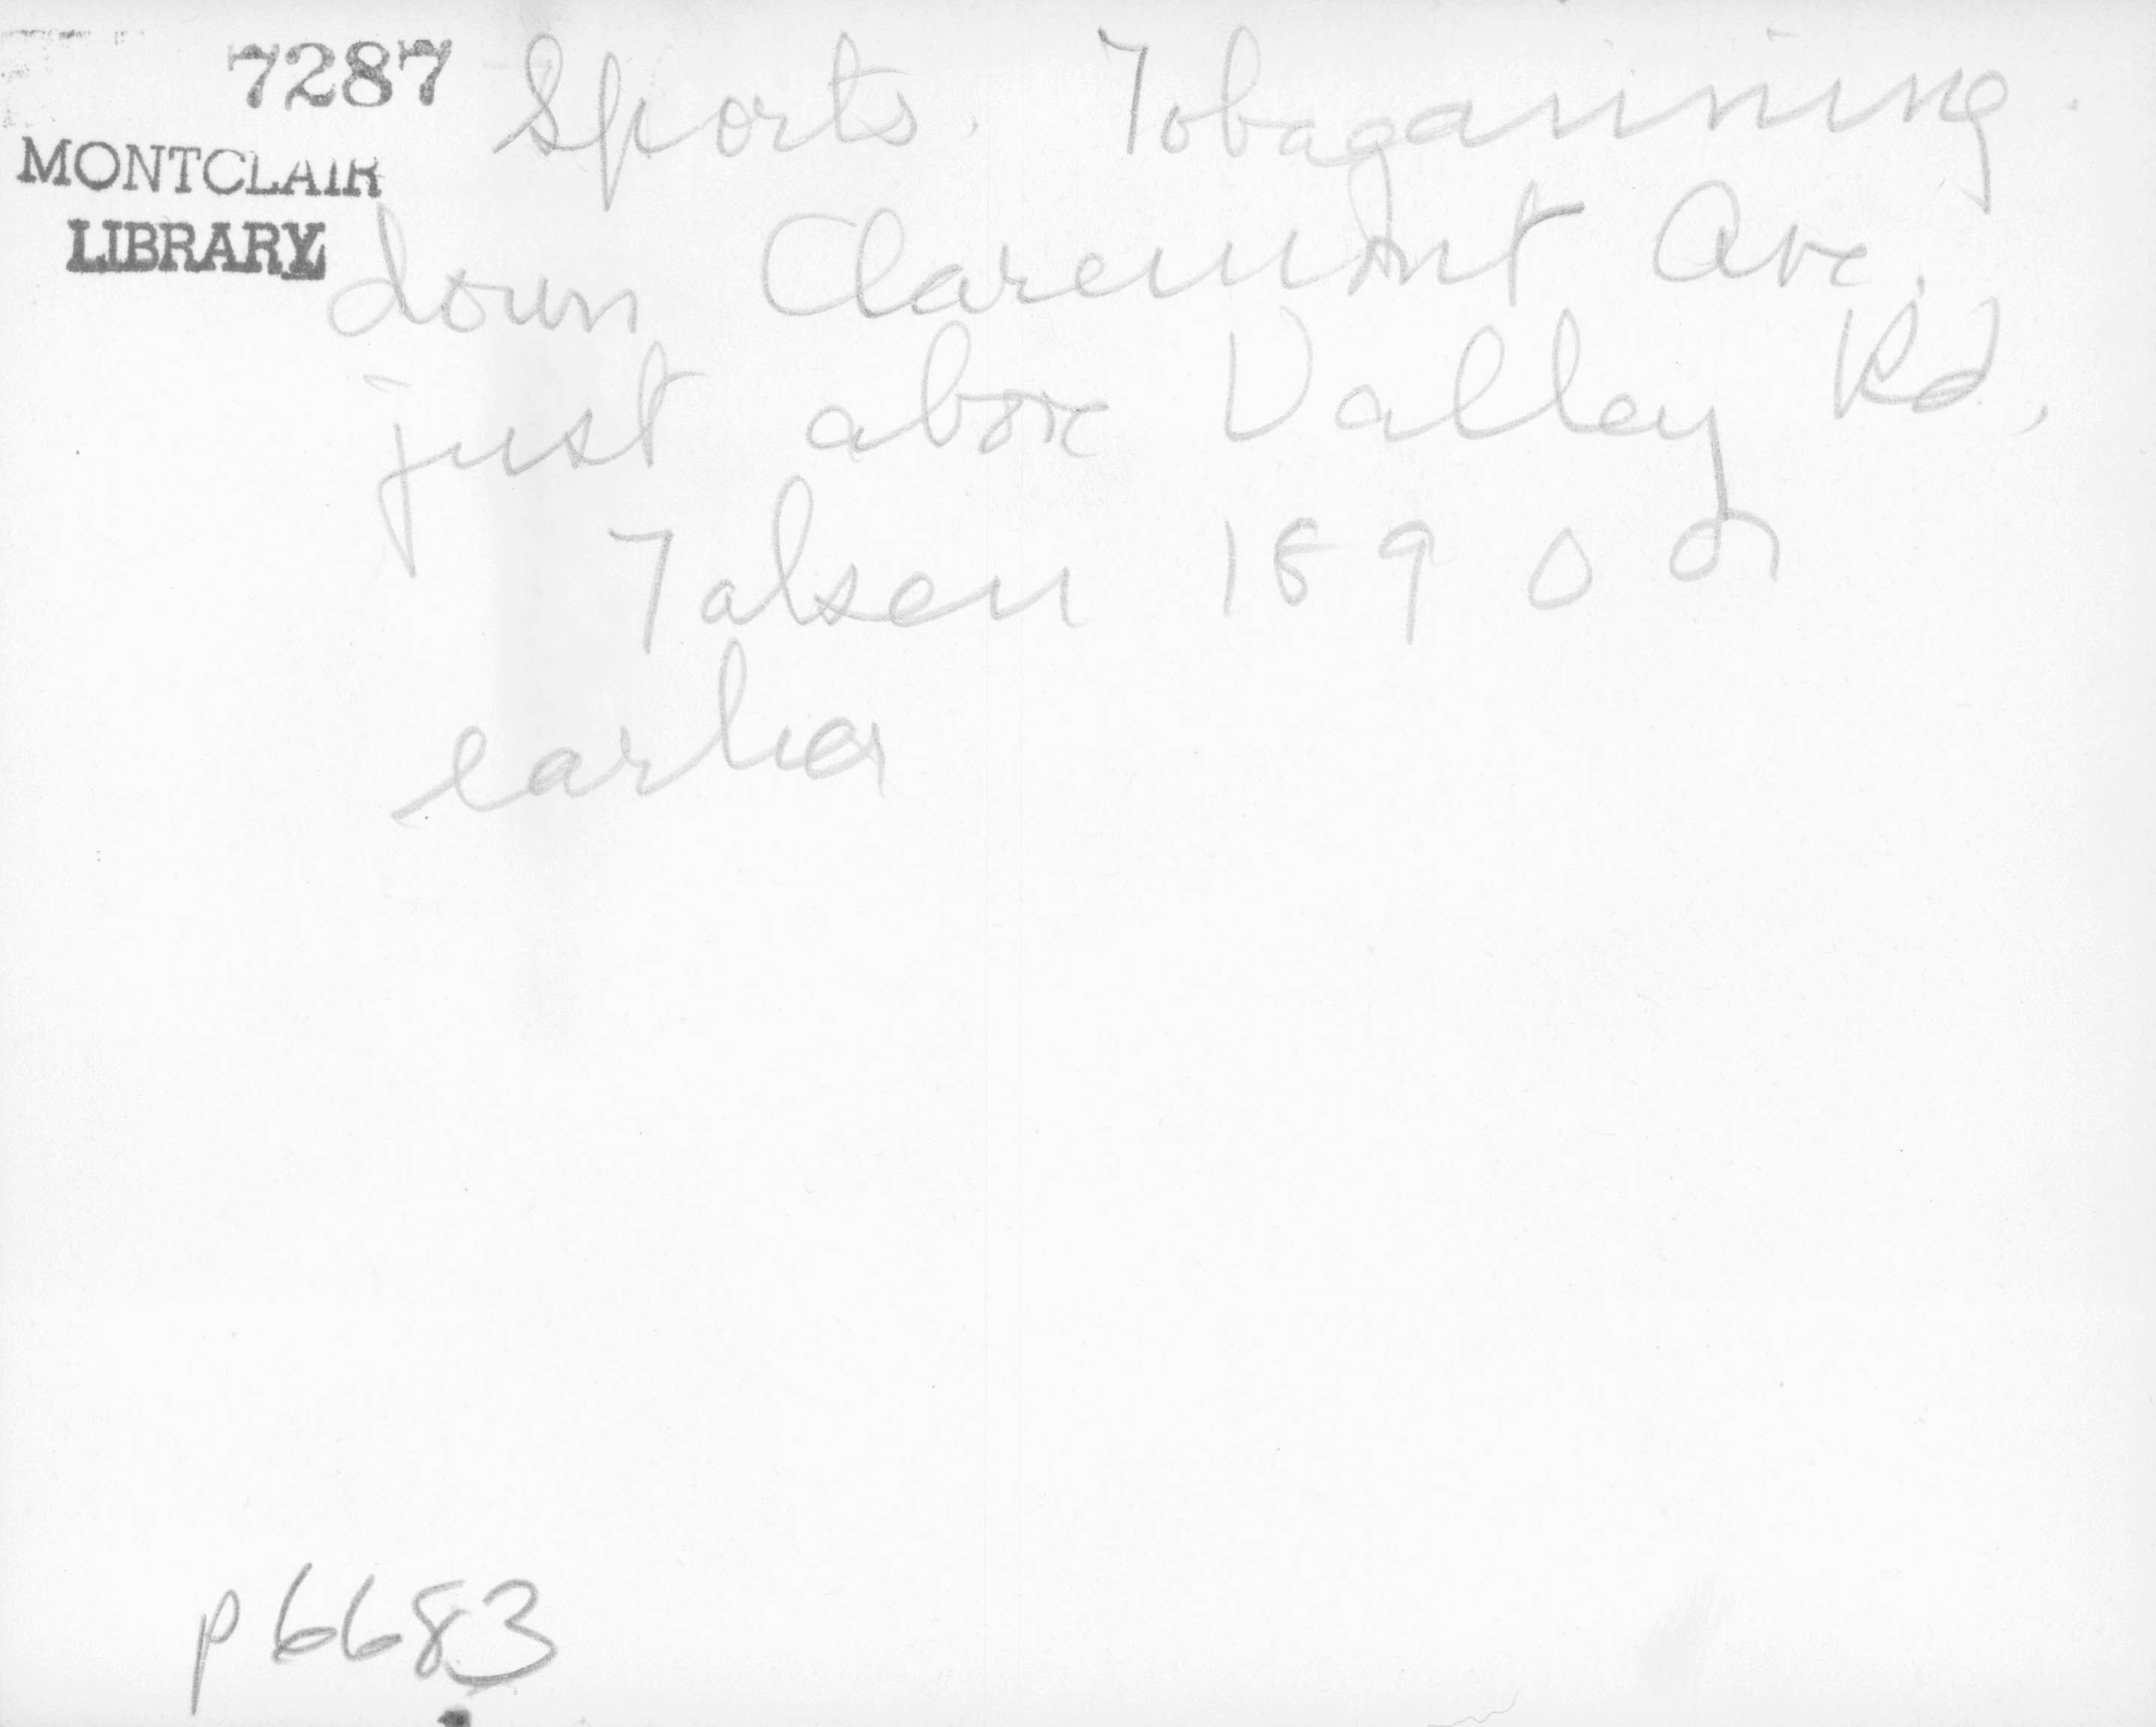 7287
MONTCLAIR
LIBRARY
Sports. Tobaganning.
down Claremont Ave.
just above Valley Rd.
Taken 1890 or
earlier
p6683